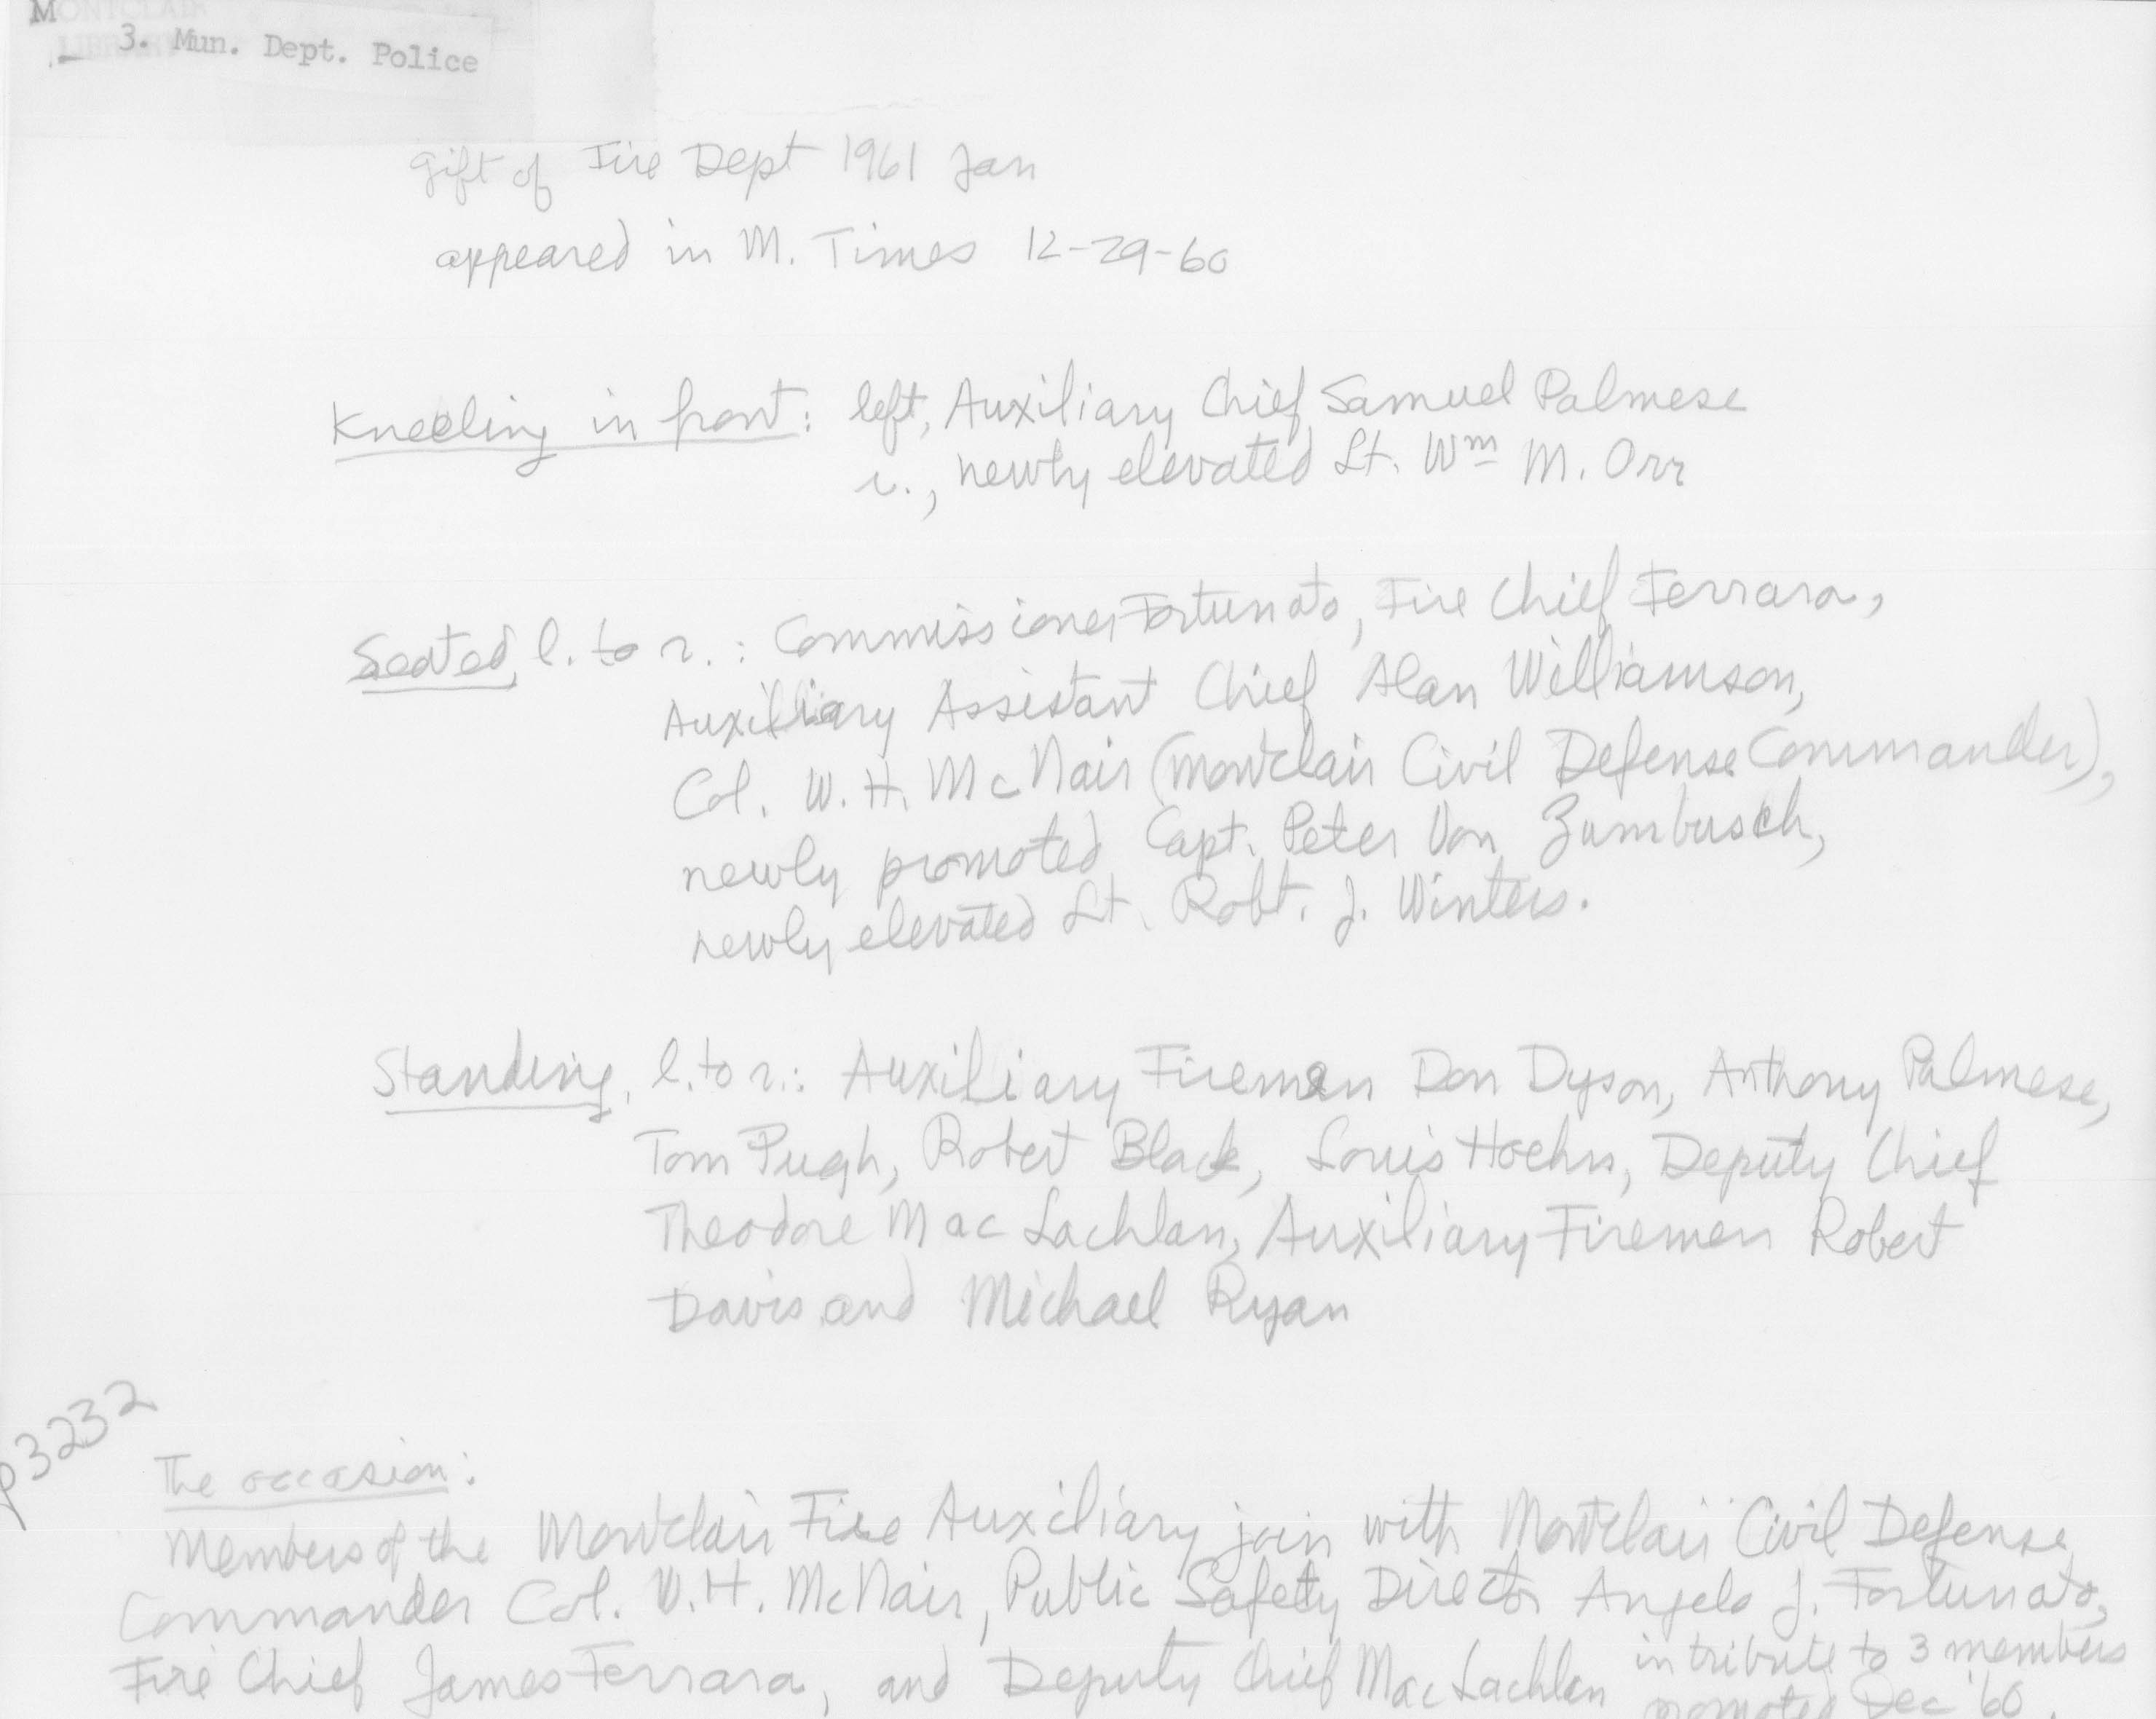 MONTCLAIR
LIBRARY
3. Mun. Dept. Police
gift of Fire Dept 1961 Jan
appeared in M. Times 12-29-60
Kneeling in front: left, Auxiliary Chief Samuel Palmese
r., newly elevated Lt. Wm M. Orr
Seated, l. to r.: Commissioner Fortunato, Fire Chief Ferrara,
Auxiliary Assistant Chief Alan Williamson,
Col. W. H. McNair (Montclair Civil Defense Commander),
newly promoted Capt. Peter Von Zumbusch,
newly elevated Lt. Robt. J. Winters.
Standing, l. to r.: Auxiliary Firemen Don Dyson, Anthony Palmese,
Tom Pugh, Robert Black, Louis Hoehn, Deputy Chief
Theodore MacLachlan, Auxiliary Firemen Robert
Davis and Michael Ryan
p3232
The occasion:
Members of the Montclair Fire Auxiliary join with Montclair Civil Defense
Commander Col. W. H. McNair, Public Safety Director Angelo J. Fortunato,
Fire Chief James Ferrara, and Deputy Chief MacLachlan in tribute to 3 members
promoted Dec '60.